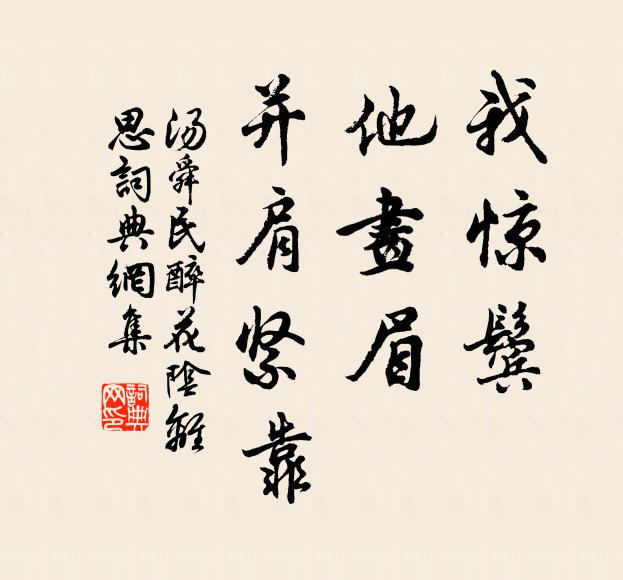 我惊鬓
他畫眉
并肩紧靠
汤舜民醉花陰離
思詞典網集
詞典
网印